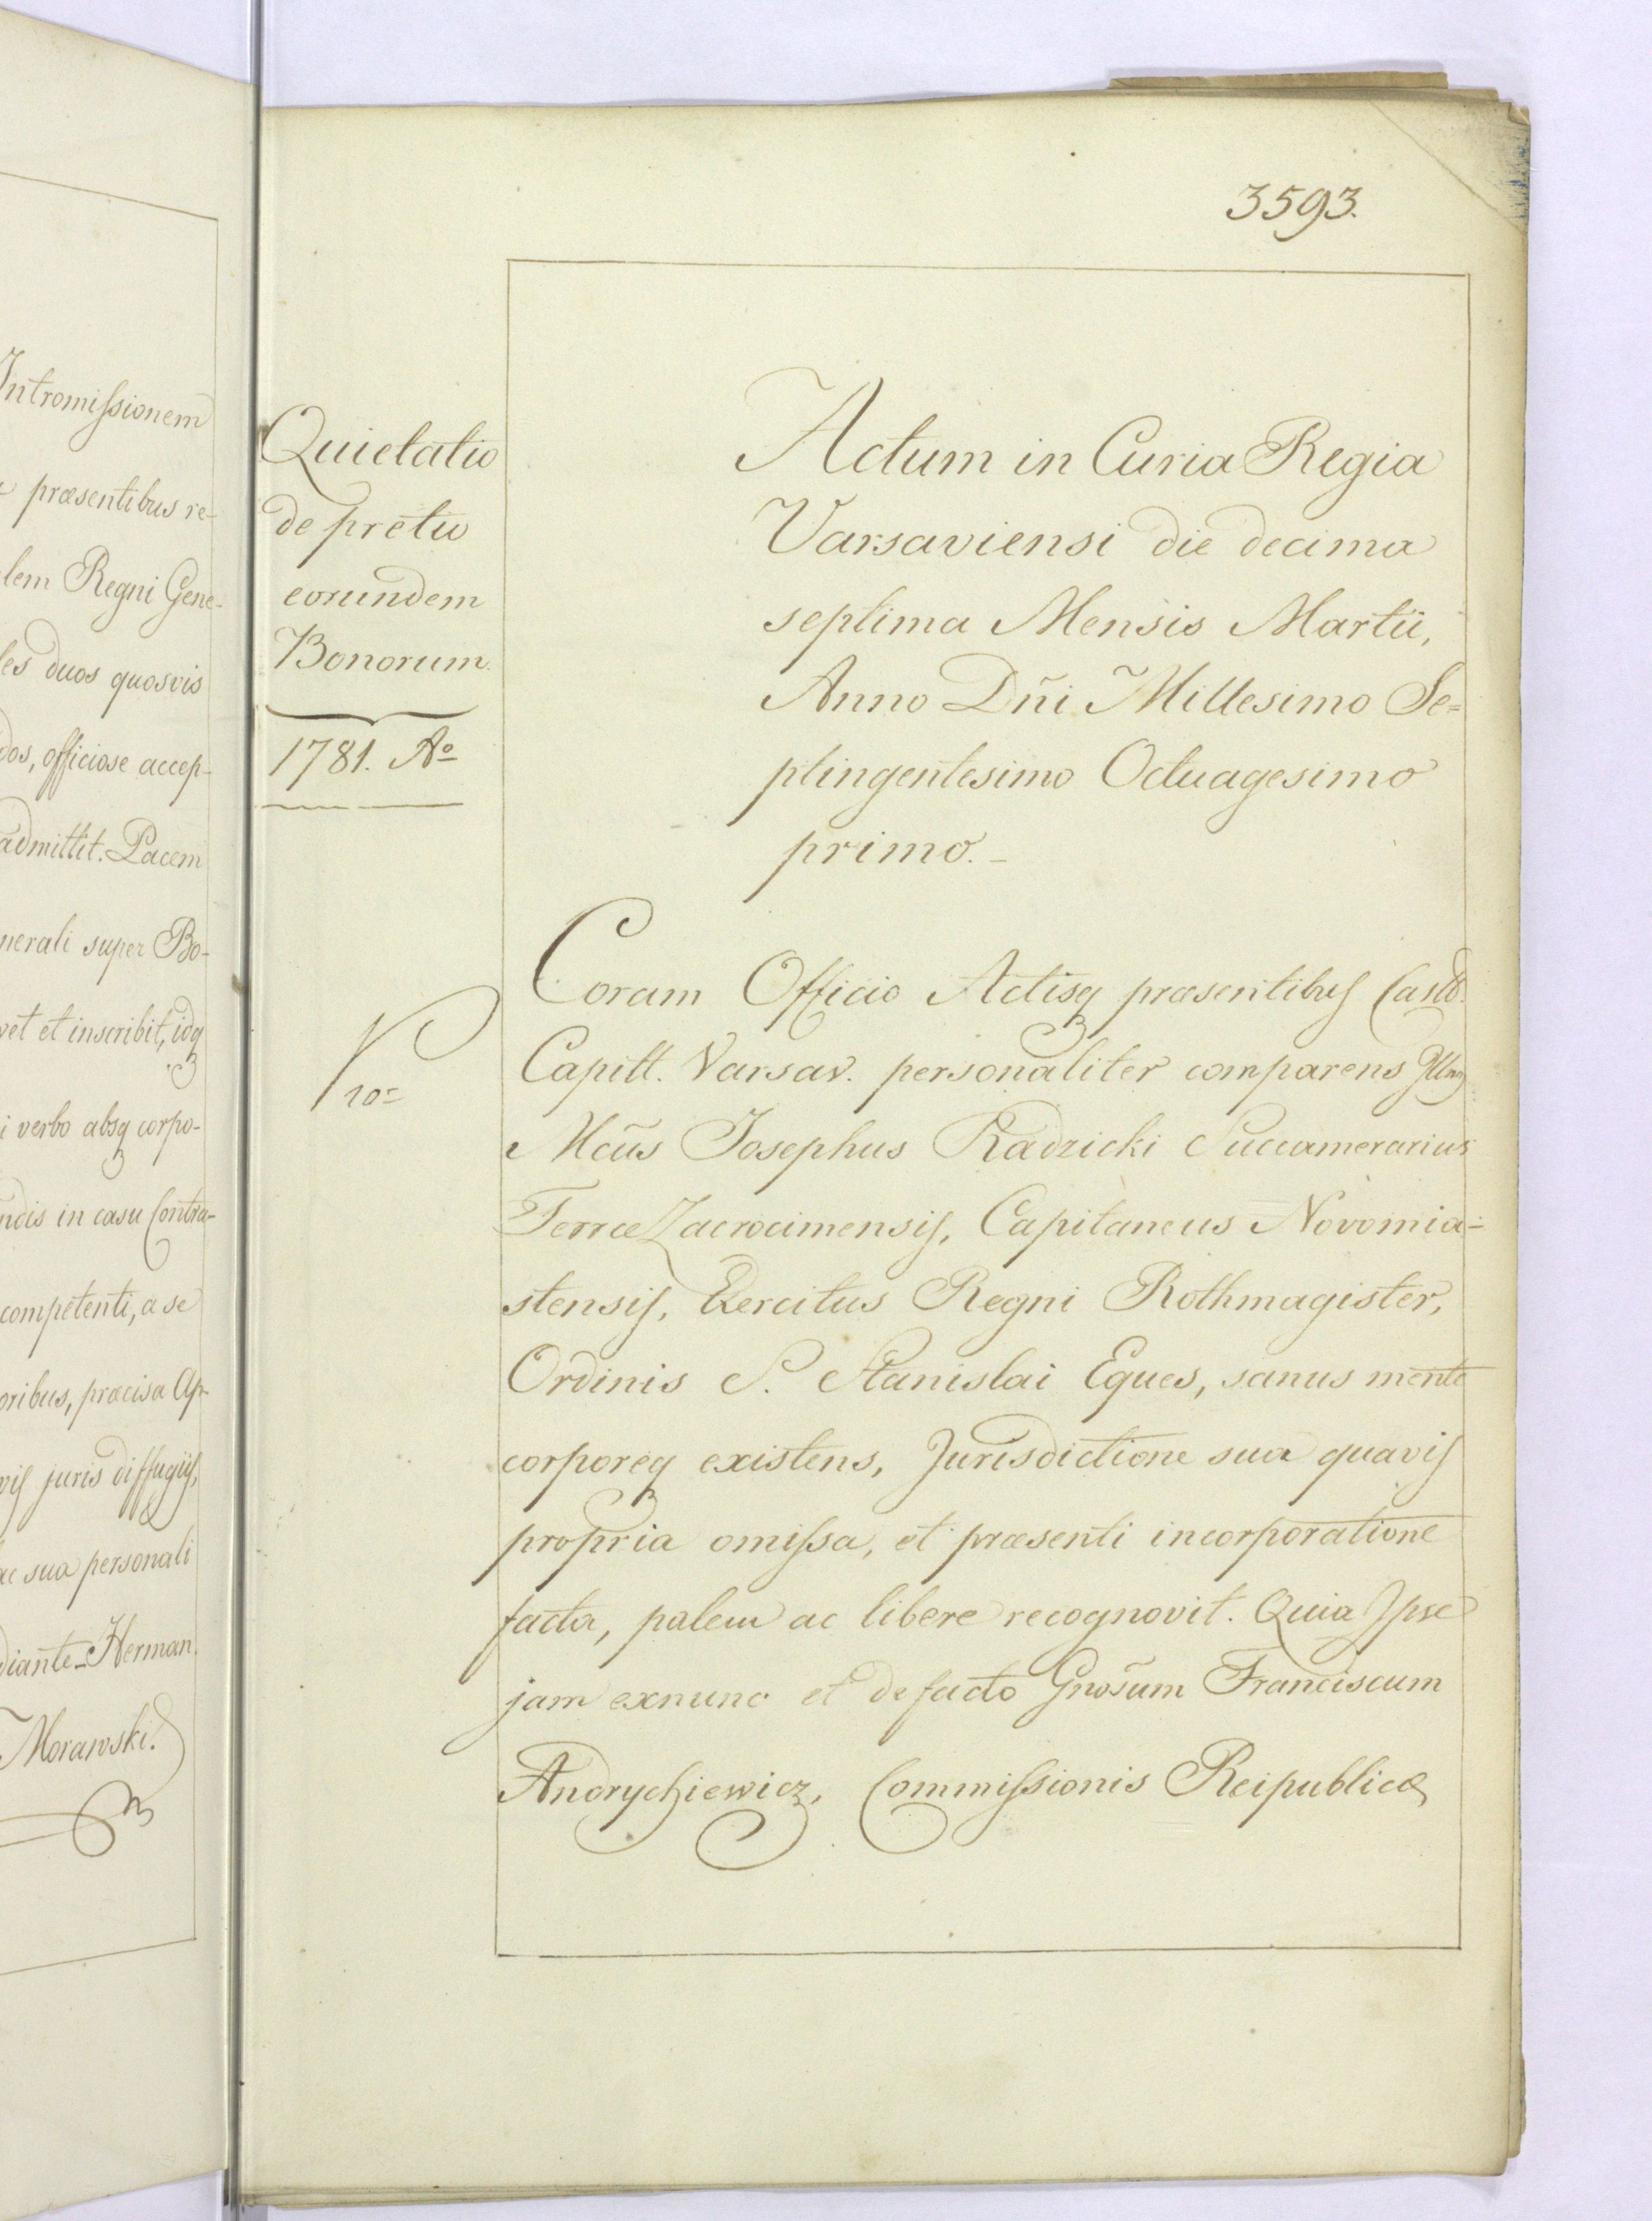 Intromissionem
præsentibus re-
lem Regni Gene-
les duos quosvis
dos, officiose accep-
admittit. Pacem
nerali super Bo-
vet et inscribit, idq
i verbo absq corpo-
ndis in casu Contra-
competenti, a se
oribus, præcisa Ap-
vis juris diffugiis,
ac sua personali
diante Herman.
Morawski.
3593.
Quietatio
de pretio
eorundem
Bonorum.
1781. Aº
Nº
10=
Actum in Curia Regia
Varsaviensi die decima
septima Mensis Martii,
Anno Dñi Millesimo Se=
ptingentesimo Octuagesimo
primo. -
Coram Officio Actisq præsentibus Castr.
Capitt. Varsav. personaliter comparens Illm͂9
Mcũs Josephus Radzicki Succamerarius
Terræ Zacrocimensis, Capitaneus Novomia=
stensis, Exercitus Regni Rothmagister,
Ordinis S. Stanislai Eques, sanus mente
corporeq existens, Jurisdictione sua quavis
propria omissa, et præsenti incorporatione
facta, palem ac libere recognovit. Quia Ipse
jam exnunc et de facto Gnosũm Franciscum
Andrychiewicz, Commissionis Reipublicæ